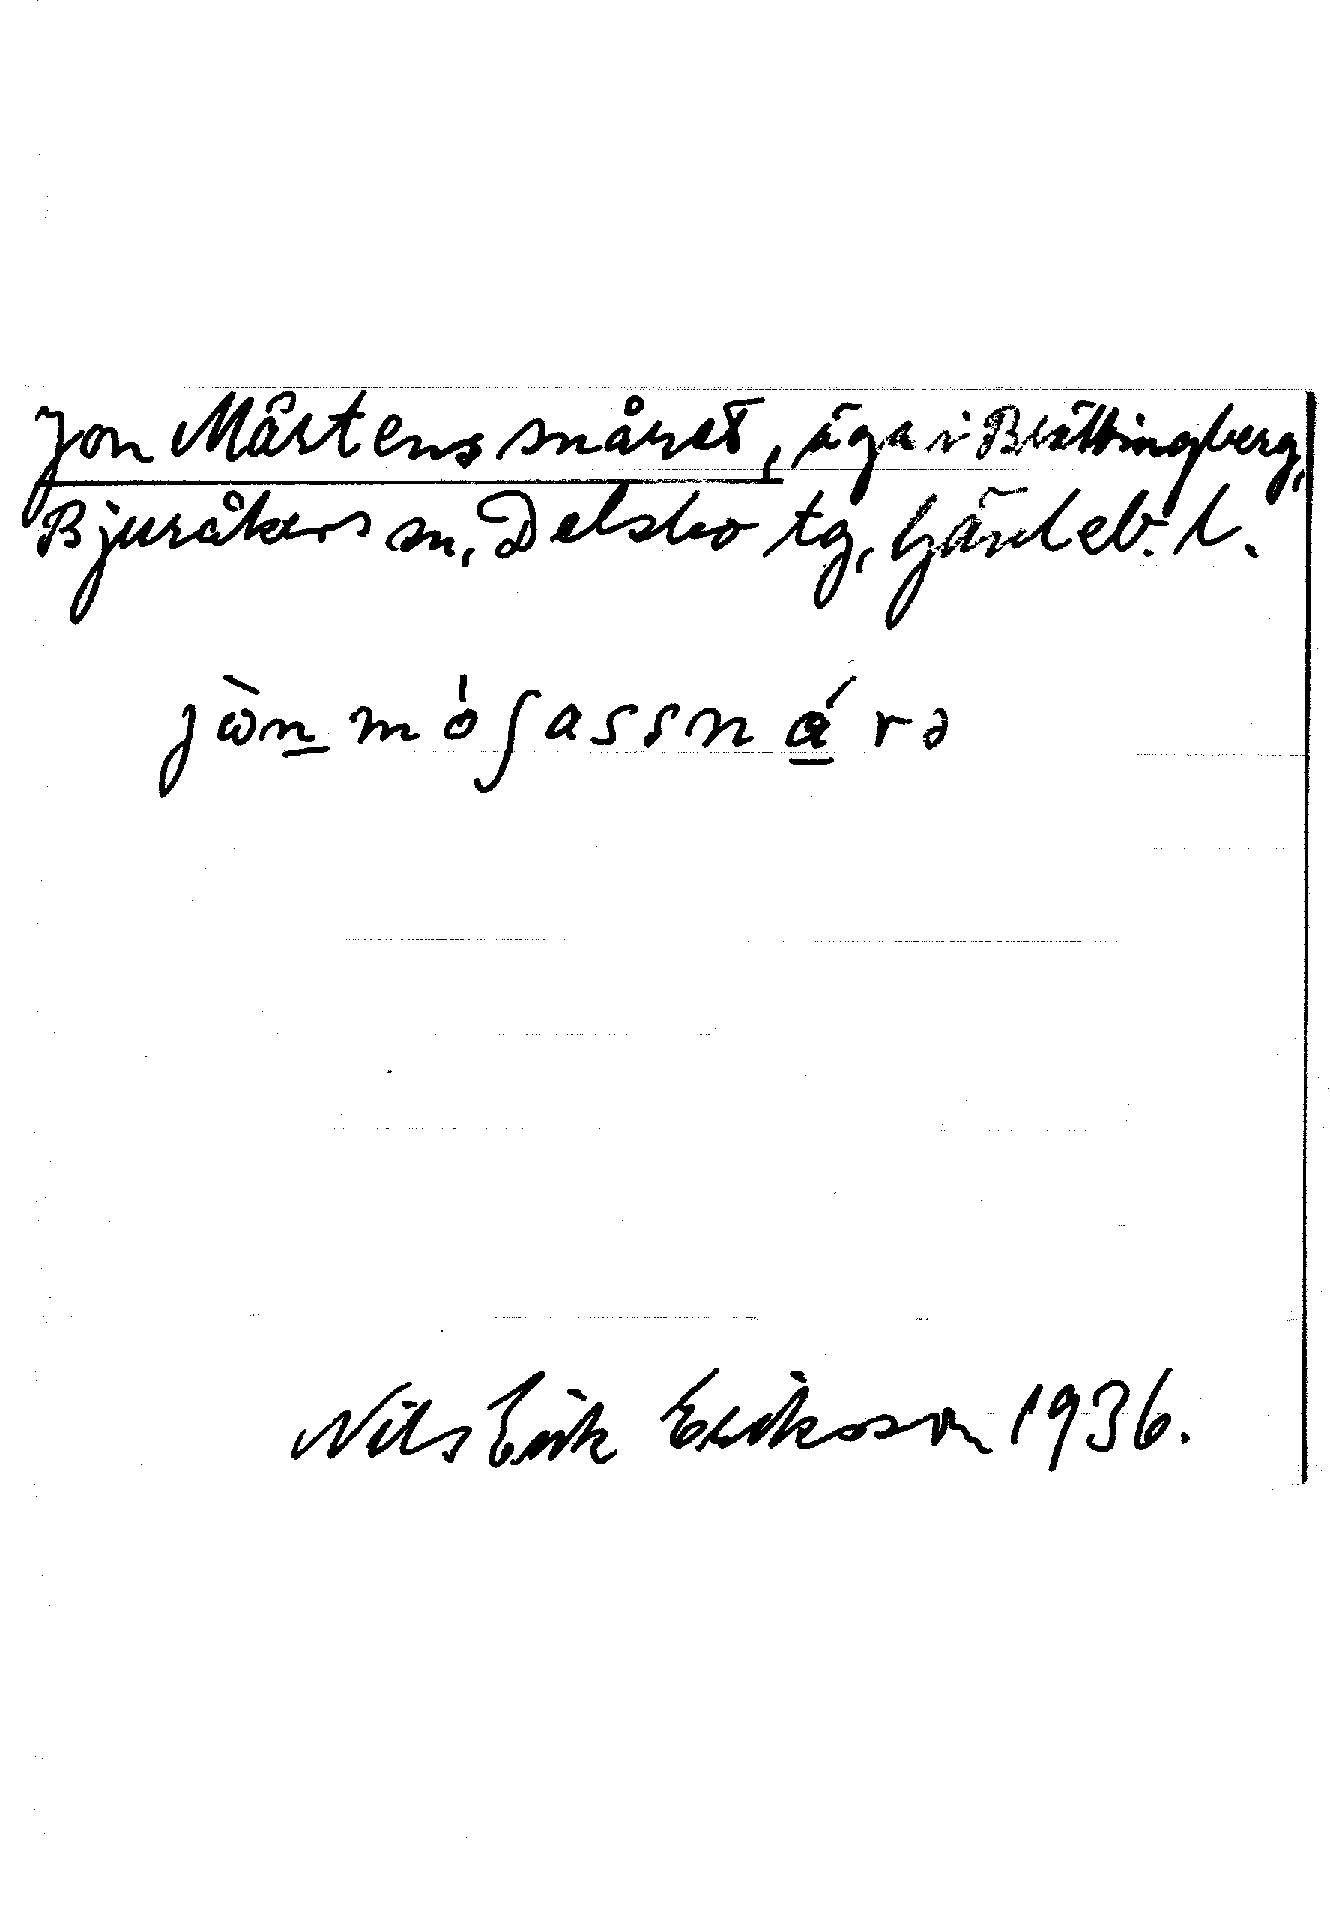 Jon Mårtens snåret, äga i Brättingberg,
Bjuråkers sn, Delsbo tg, Gävleb. l.
jὼn móʃassnárə
Nils Erik Eriksson 1936.